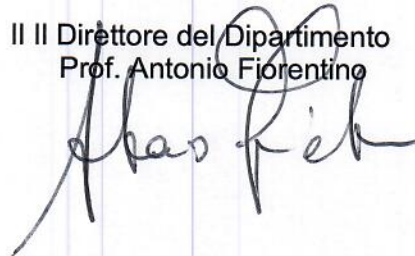 Il Il Direttore del Dipartimento
Prof. Antonio Fiorentino